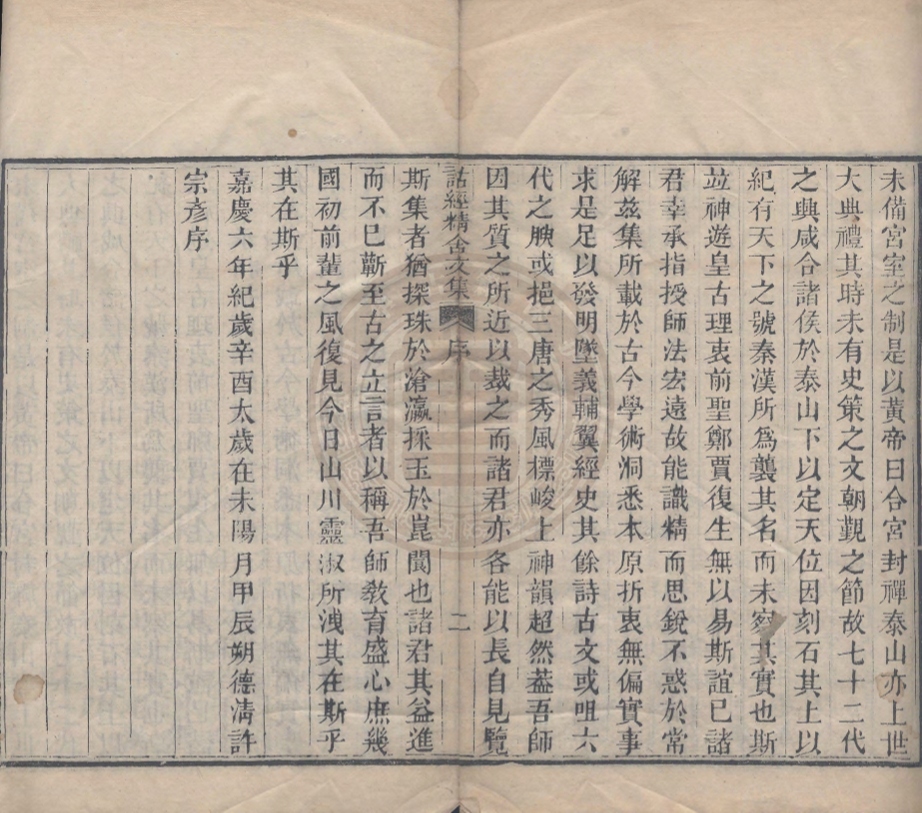 未備宮室之制是以黃帝曰合宮封禪泰山亦上世
大典禮其時未有史策之文朝覲之節故七十二代
之興咸合諸侯於泰山下以定天位因刻石其上以
紀有天下之號秦漢所爲襲其名而未察其實也斯
竝神遊皇古理衷前聖鄭賈復生無以易斯誼已諸
君幸承指授師法宏遠故能識精而思銳不惑於常
解茲集所載於古今學術洞悉本原折衷無偏實事
求是足以發明墜義輔翼經史其餘詩古文或咀六
代之腴或挹三唐之秀風標峻上神韻超然葢吾師
因其質之所近以裁之而諸君亦各能以長自見覽
詁經精舍文集 序 二
斯集者猶探珠於滄瀛採玉於崑閬也諸君其益進
而不已蘄至古之立言者以稱吾師敎育盛心庶幾
國初前輩之風復見今日山川靈淑所洩其在斯乎
其在斯乎
嘉慶六年紀歲辛酉太歲在未陽月甲辰朔德清許
宗彥序